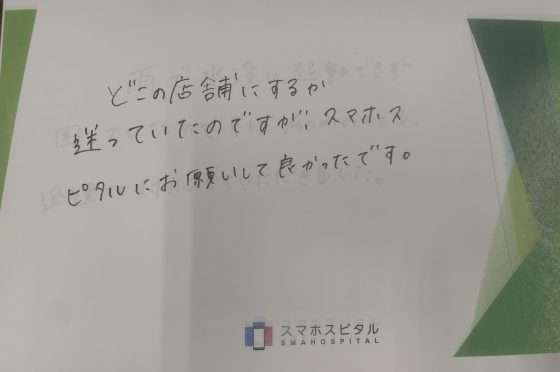 どこの店舗にするか
迷っていたのですが、スマホス
ピタルにお願いして良かったです。
スマホスピタル
SMAHOSPITAL